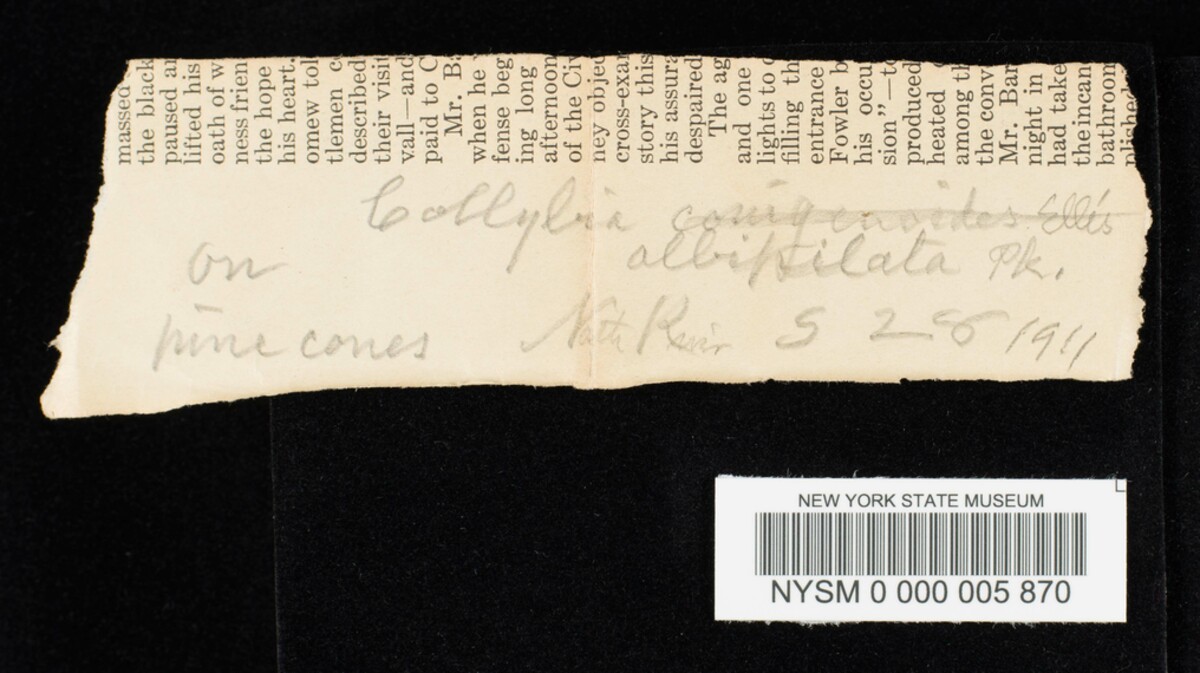 massed
the black
paused a
lifted his
oath of w
ness frien
the hope
his heart.
omew tol
tlemen c
described
their visi
vall—and
paid to C
Mr. Ba
when he
fense beg
ing long
afternoon
of the Civ
ney objec
cross-exa
story this
his assura
despaired
The ag
and one
lights to
filling th
entrance
Fowler b
his occu
sion"—to
produced
heated
among th
the conv
Mr. Bar
night in
had take
the incan
bathroom
plished
Collybia conigenoides Ellis
albipilata Pk.
on
pine cones
North River S 28 1911
NEW YORK STATE MUSEUM
NYSM 0 000 005 870